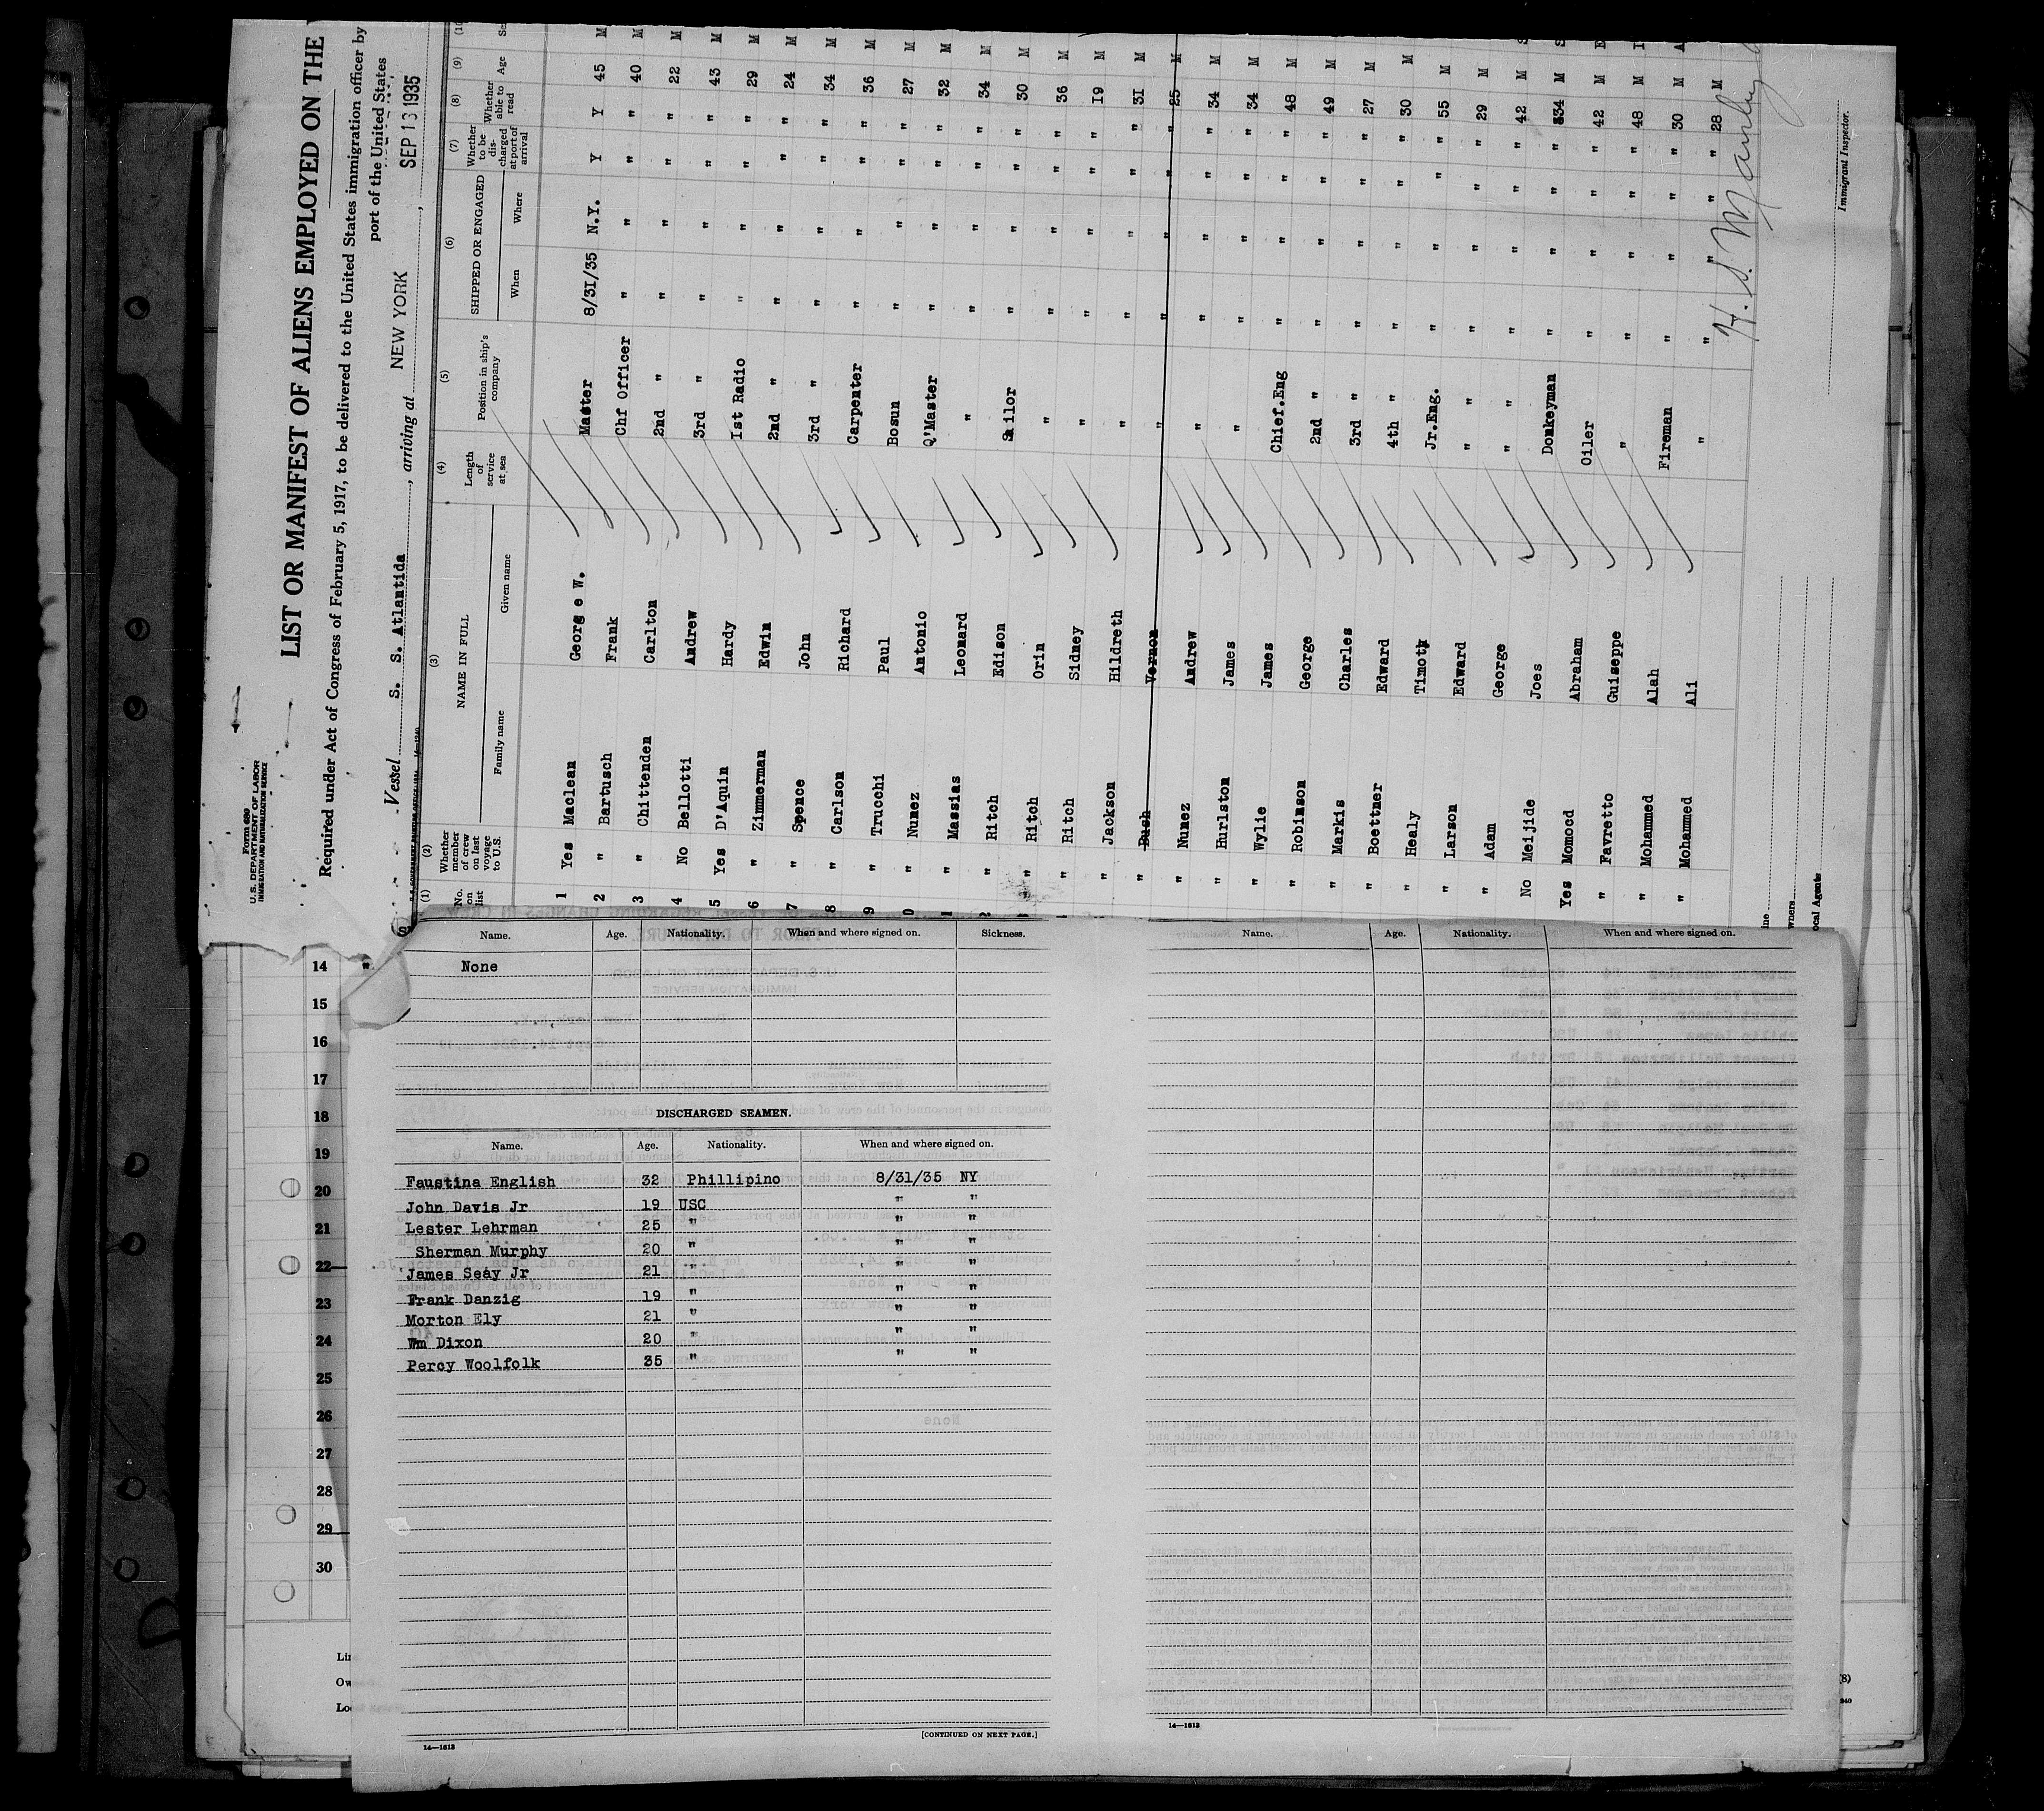 Form 689
U.S. DEPARTMENT OF LABOR
IMMIGRATION AND NATURALIZATION SERVICE
LIST OR MANIFEST OF ALIENS EMPLOYED ON THE
Required under Act of Congress of February 5, 1917, to be delivered to the United States immigration officer by
port of the United States
Vessel S. S. Atlantida, arriving at NEW YORK, SEP 13 1935
(1) No. on list
(2) Whether member of crew on last voyage to U.S.
(3) NAME IN FULL Family name Given name
(4) Length of service at sea
(5) Position in ship's company
(6) SHIPPED OR ENGAGED When Where
(7) Whether to be discharged at port of arrival
(8) Whether able to read
(9) Age
1 Yes Maclean George W. Master 8/31/35 N.Y. Y Y 45 M
2 " Bartusch Frank Chf Officer " " " " 40 M
3 " Chittenden Carlton 2nd " " " " " 22 M
4 No Bellotti Andrew 3rd " " " " " 43 M
5 Yes D'Aquin Hardy 1st Radio " " " " 29 M
6 " Zimmerman Edwin 2nd " " " " " 24 M
7 " Spence John 3rd " " " " " 34 M
8 " Carlson Richard Carpenter " " " " 36 M
9 " Trucchi Paul Bosun " " " " 27 M
0 " Nunez Antonio Q'Master " " " " 32 M
1 " Massias Leonard " " " " " 34 M
2 " Ritch Edison Sailor " " " " 30 M
" Ritch Orin " " " " " 36 M
" Ritch Sidney " " " " " 19 M
" Jackson Hildreth " " " " " 31 M
" Bush Vernon " " " " " 25 M
" Nunez Andrew " " " " " 34 M
" Hurlston James " " " " " 34 M
" Wylie James Chief.Eng " " " " 48 M
" Robinson George 2nd " " " " " 49 M
" Markis Charles 3rd " " " " " 27 M
" Boettner Edward 4th " " " " " 30 M
" Healy Timoth Jr.Eng. " " " " 55 M
" Larson Edward " " " " " 29 M
" Adam George " " " " " 42 M
No Meijide Joes Donkeyman " " " " 34 M
Yes Momocd Abraham Oiler " " " " 42 M
" Favretto Guiseppe " " " " " 48 M
" Mohammed Alah Fireman " " " " 30 M
" Mohammed Ali " " " " " 28 M
Immigrant Inspector.
Name. Age. Nationality. When and where signed on. Sickness.
None
DISCHARGED SEAMEN.
Name. Age. Nationality. When and where signed on.
Faustina English 32 Phillipino 8/31/35 NY
John Davis Jr 19 USC " "
Lester Lehrman 25 " " "
Sherman Murphy 20 " " "
James Seay Jr 21 " " "
Frank Danzig 19 " " "
Morton Ely 21 " " "
Wm Dixon 20 " " "
Percy Woolfolk 35 " " "
[CONTINUED ON NEXT PAGE.]
14—1613
Name. Age. Nationality. When and where signed on.
14—1613
14
15
16
17
18
19
20
21
22
23
24
25
26
27
28
29
30